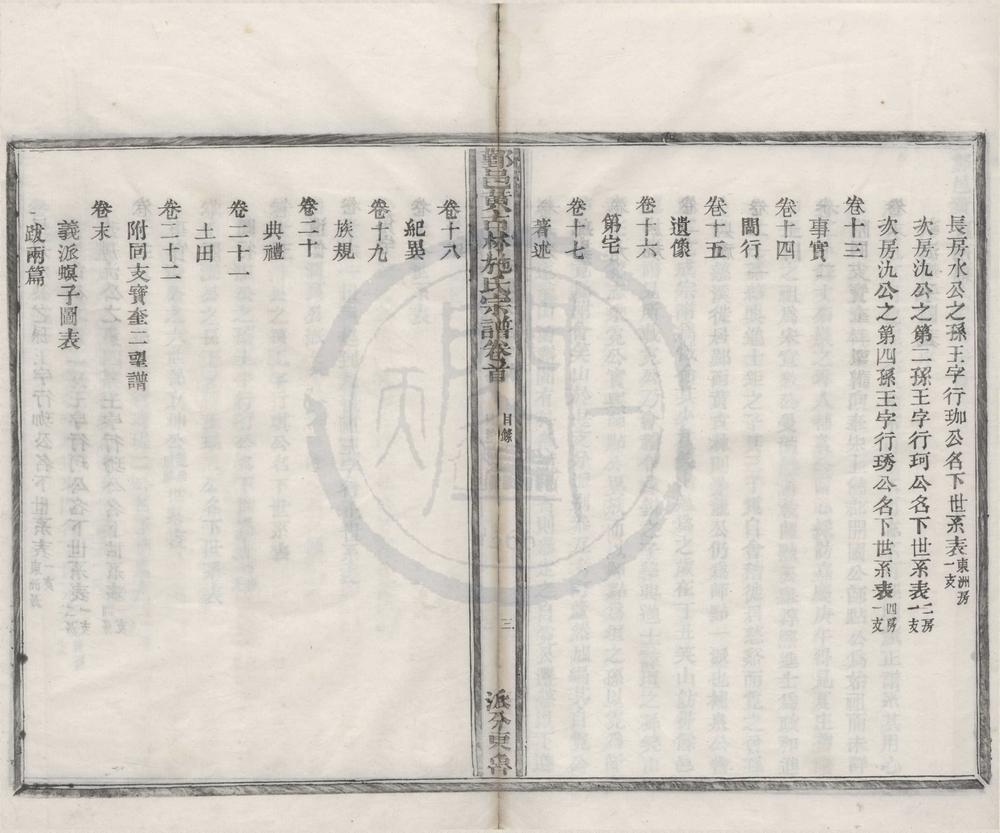 長房水公之孫王字行珈公名下世系表東洲房一支
次房氿公之第二孫王字行珂公名下世系表二房一支
次房氿公之第四孫王字行琇公名下世系表四房一支
卷十三
事實
卷十四
閫行
卷十五
遺像
卷十六
第宅
卷十七
著述
鄞邑黃古林施氏宗譜卷首
目錄
三
派分東魯
卷十八
紀異
卷十九
族規
卷二十
典禮
卷二十一
土田
卷二十二
附同支寶奎二望譜
卷末
義派螟子圖表
跋兩篇